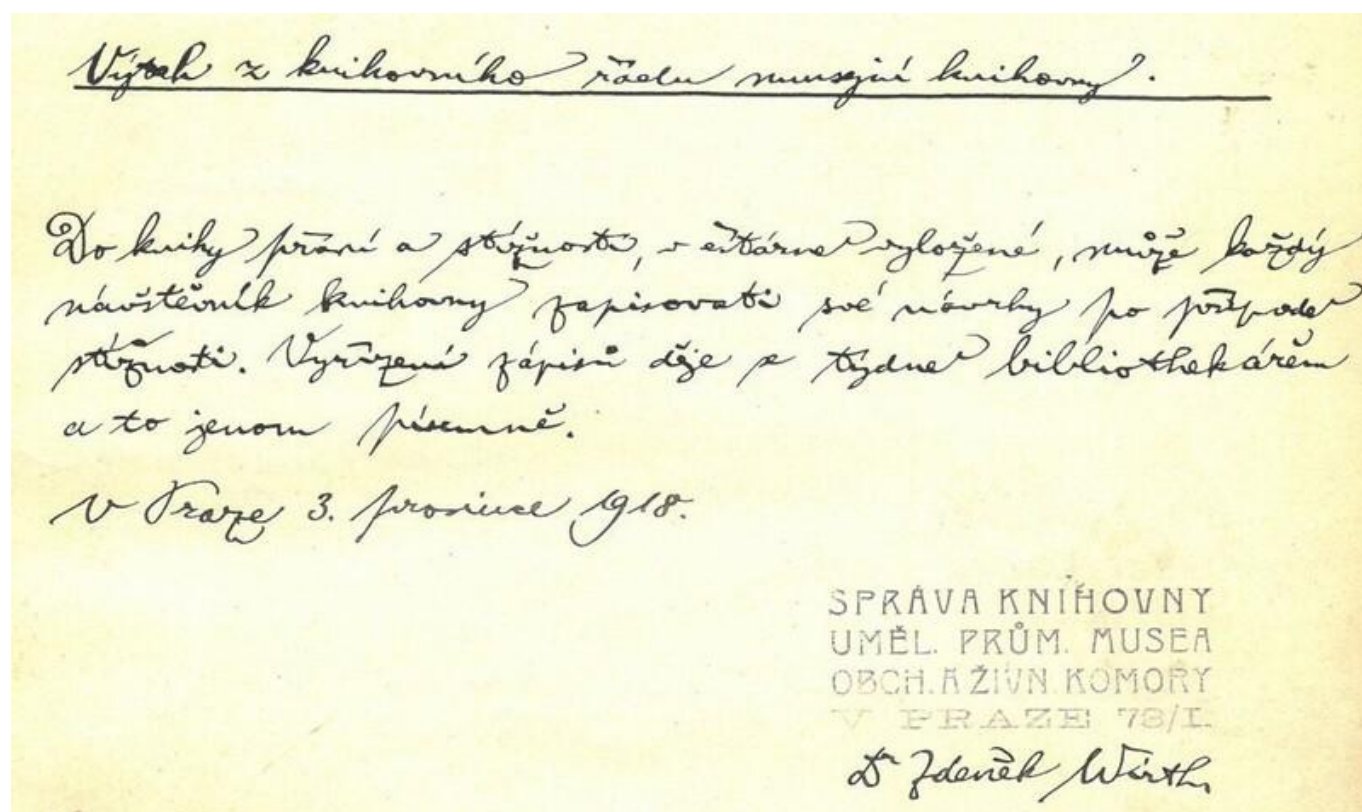 Výtah z knihovního řádu musejní knihovny.
Do knihy přání a stížností, v čítárně vyložené, může každý
návštěvník knihovny zapisovati své návrhy po případě
stížnosti. Vyřízení zápisů děje se týdně bibliothekářem
a to jenom písemně.
V Praze 3. prosince 1918.
SPRÁVA KNIHOVNY
UMĚL. PRŮM. MUSEA
OBCH. A ŽIVN. KOMORY
V PRAZE 78/I.
Dr Zdeněk Wirth